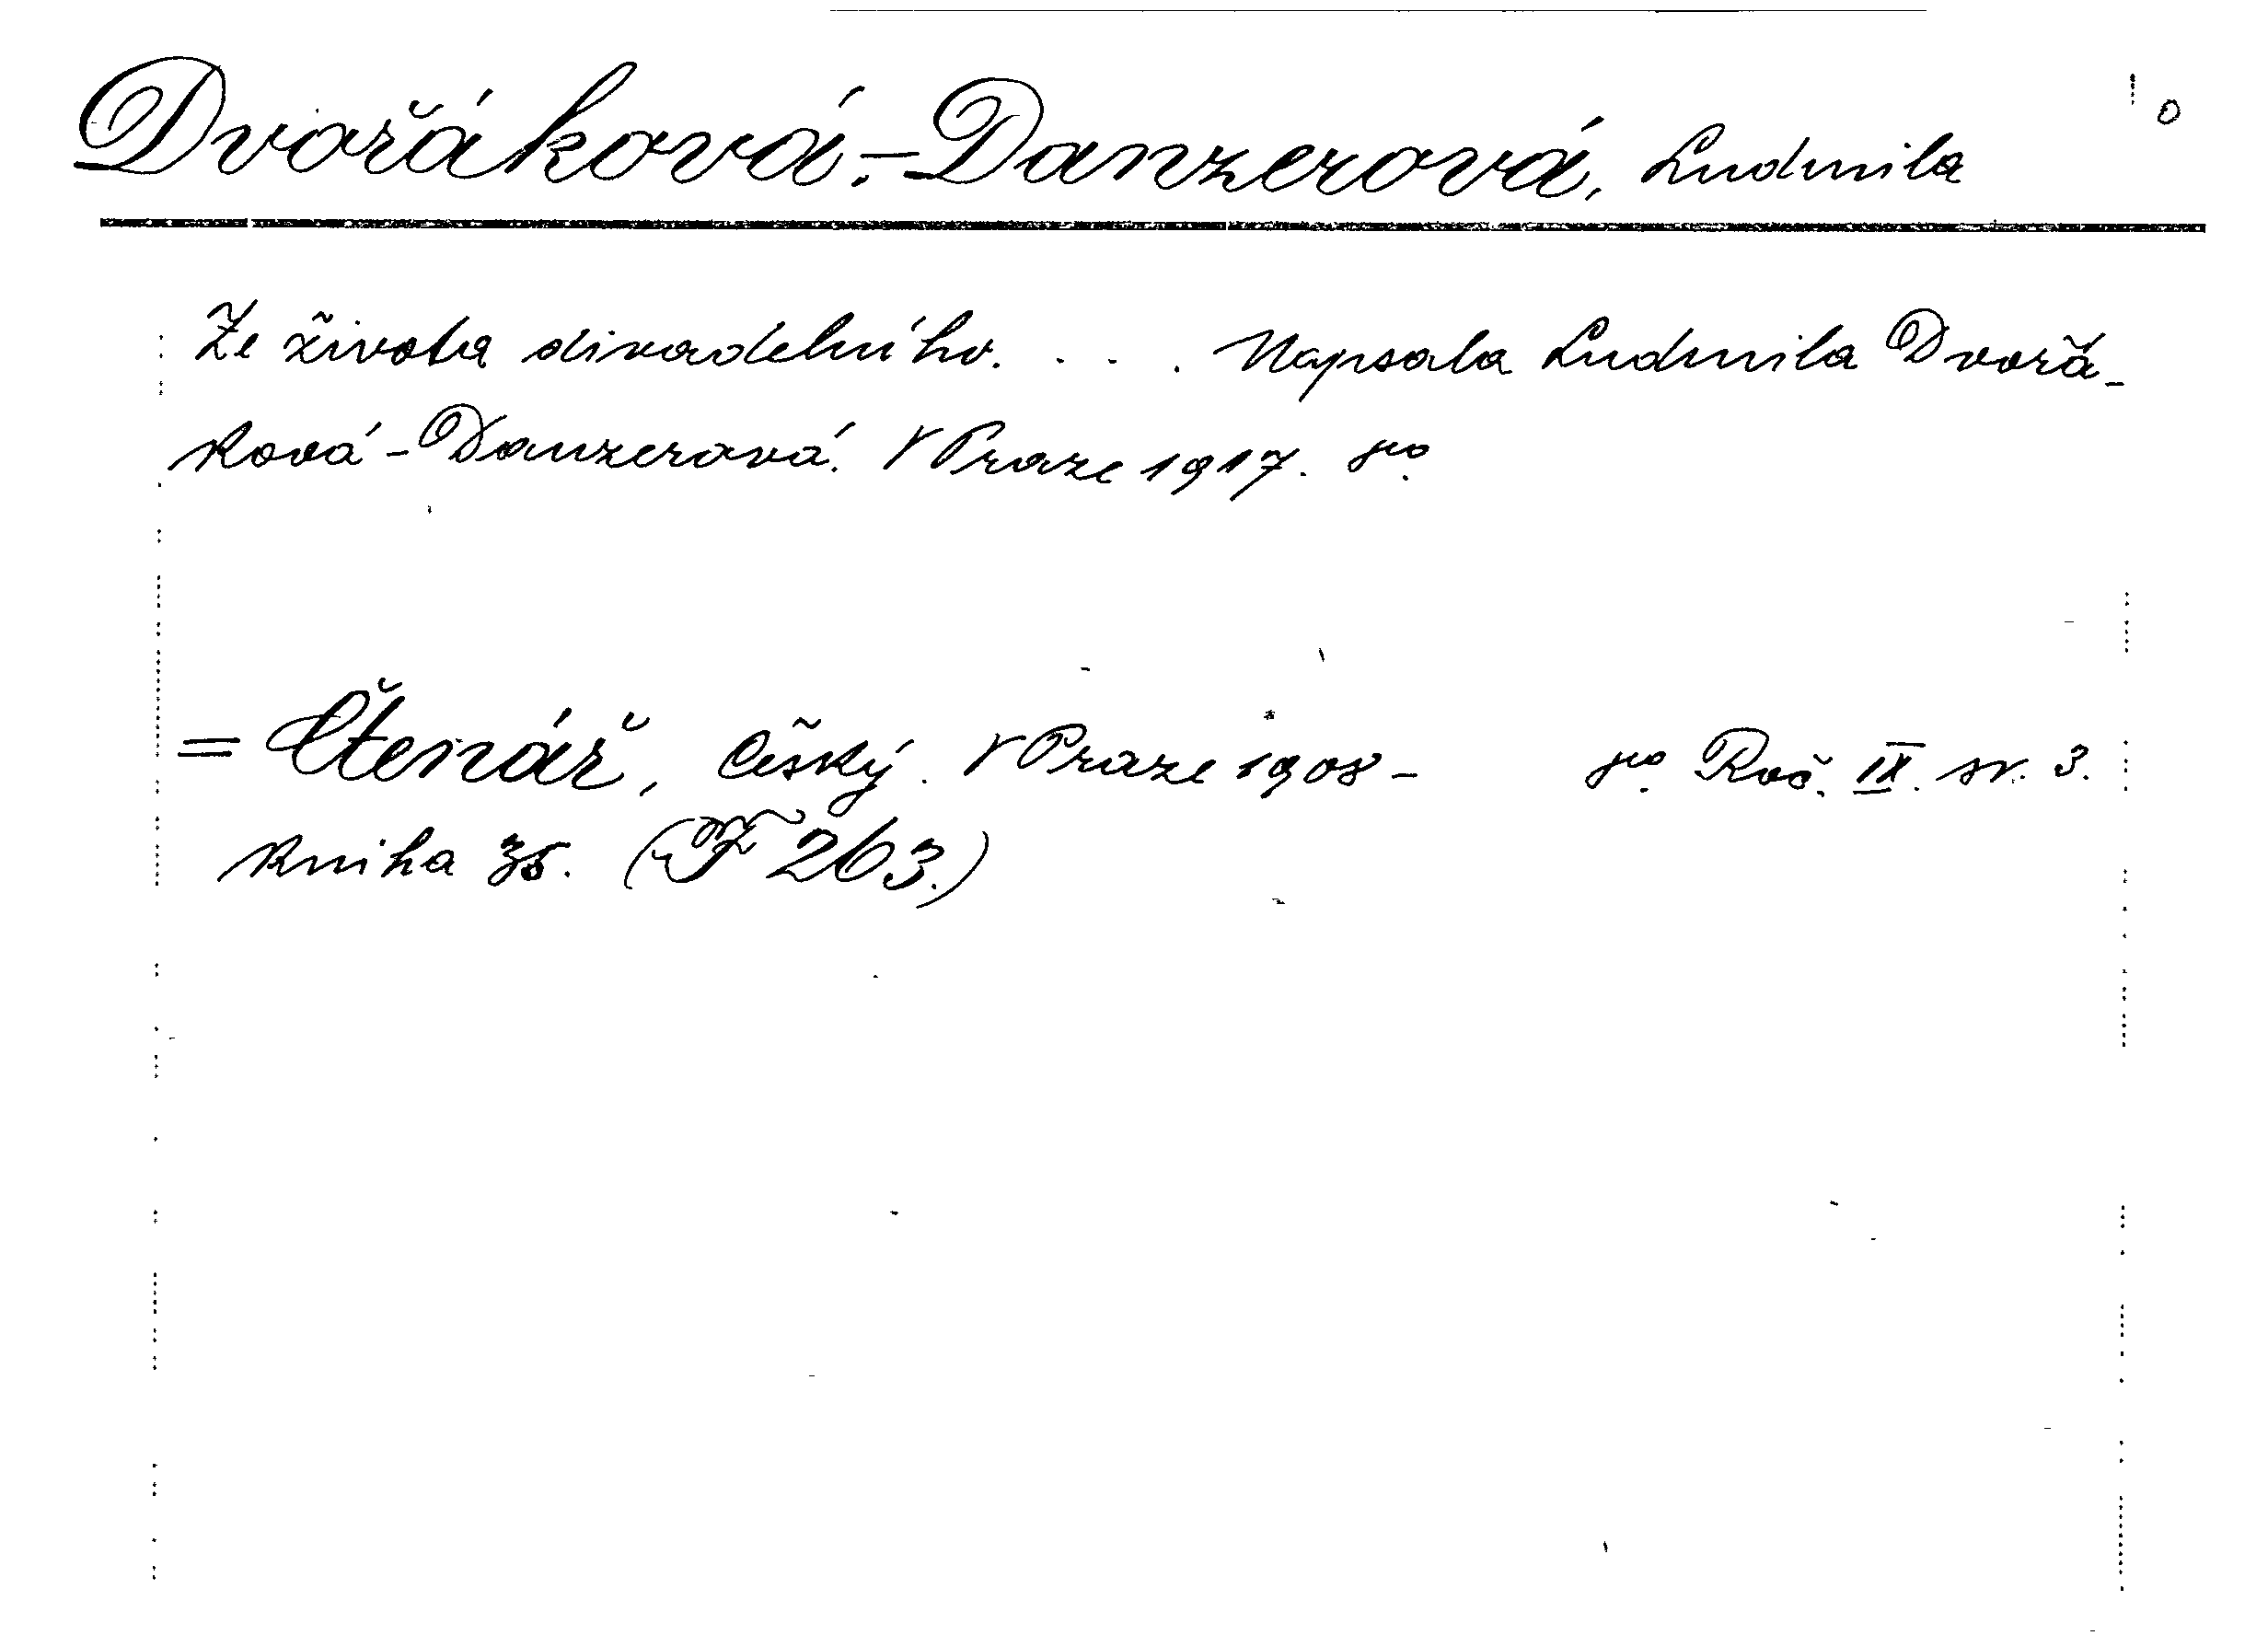 Dvořáková-Danzerová, Ludmila
Ze života divadelního. . . . Napsala Ludmila Dvořá-
ková-Danzerová. V Praze 1917. 8°.
= Čtenář, Český. V Praze 1908- 8°. Roč. IX. sv. 3.
kniha 35. (F 263.)